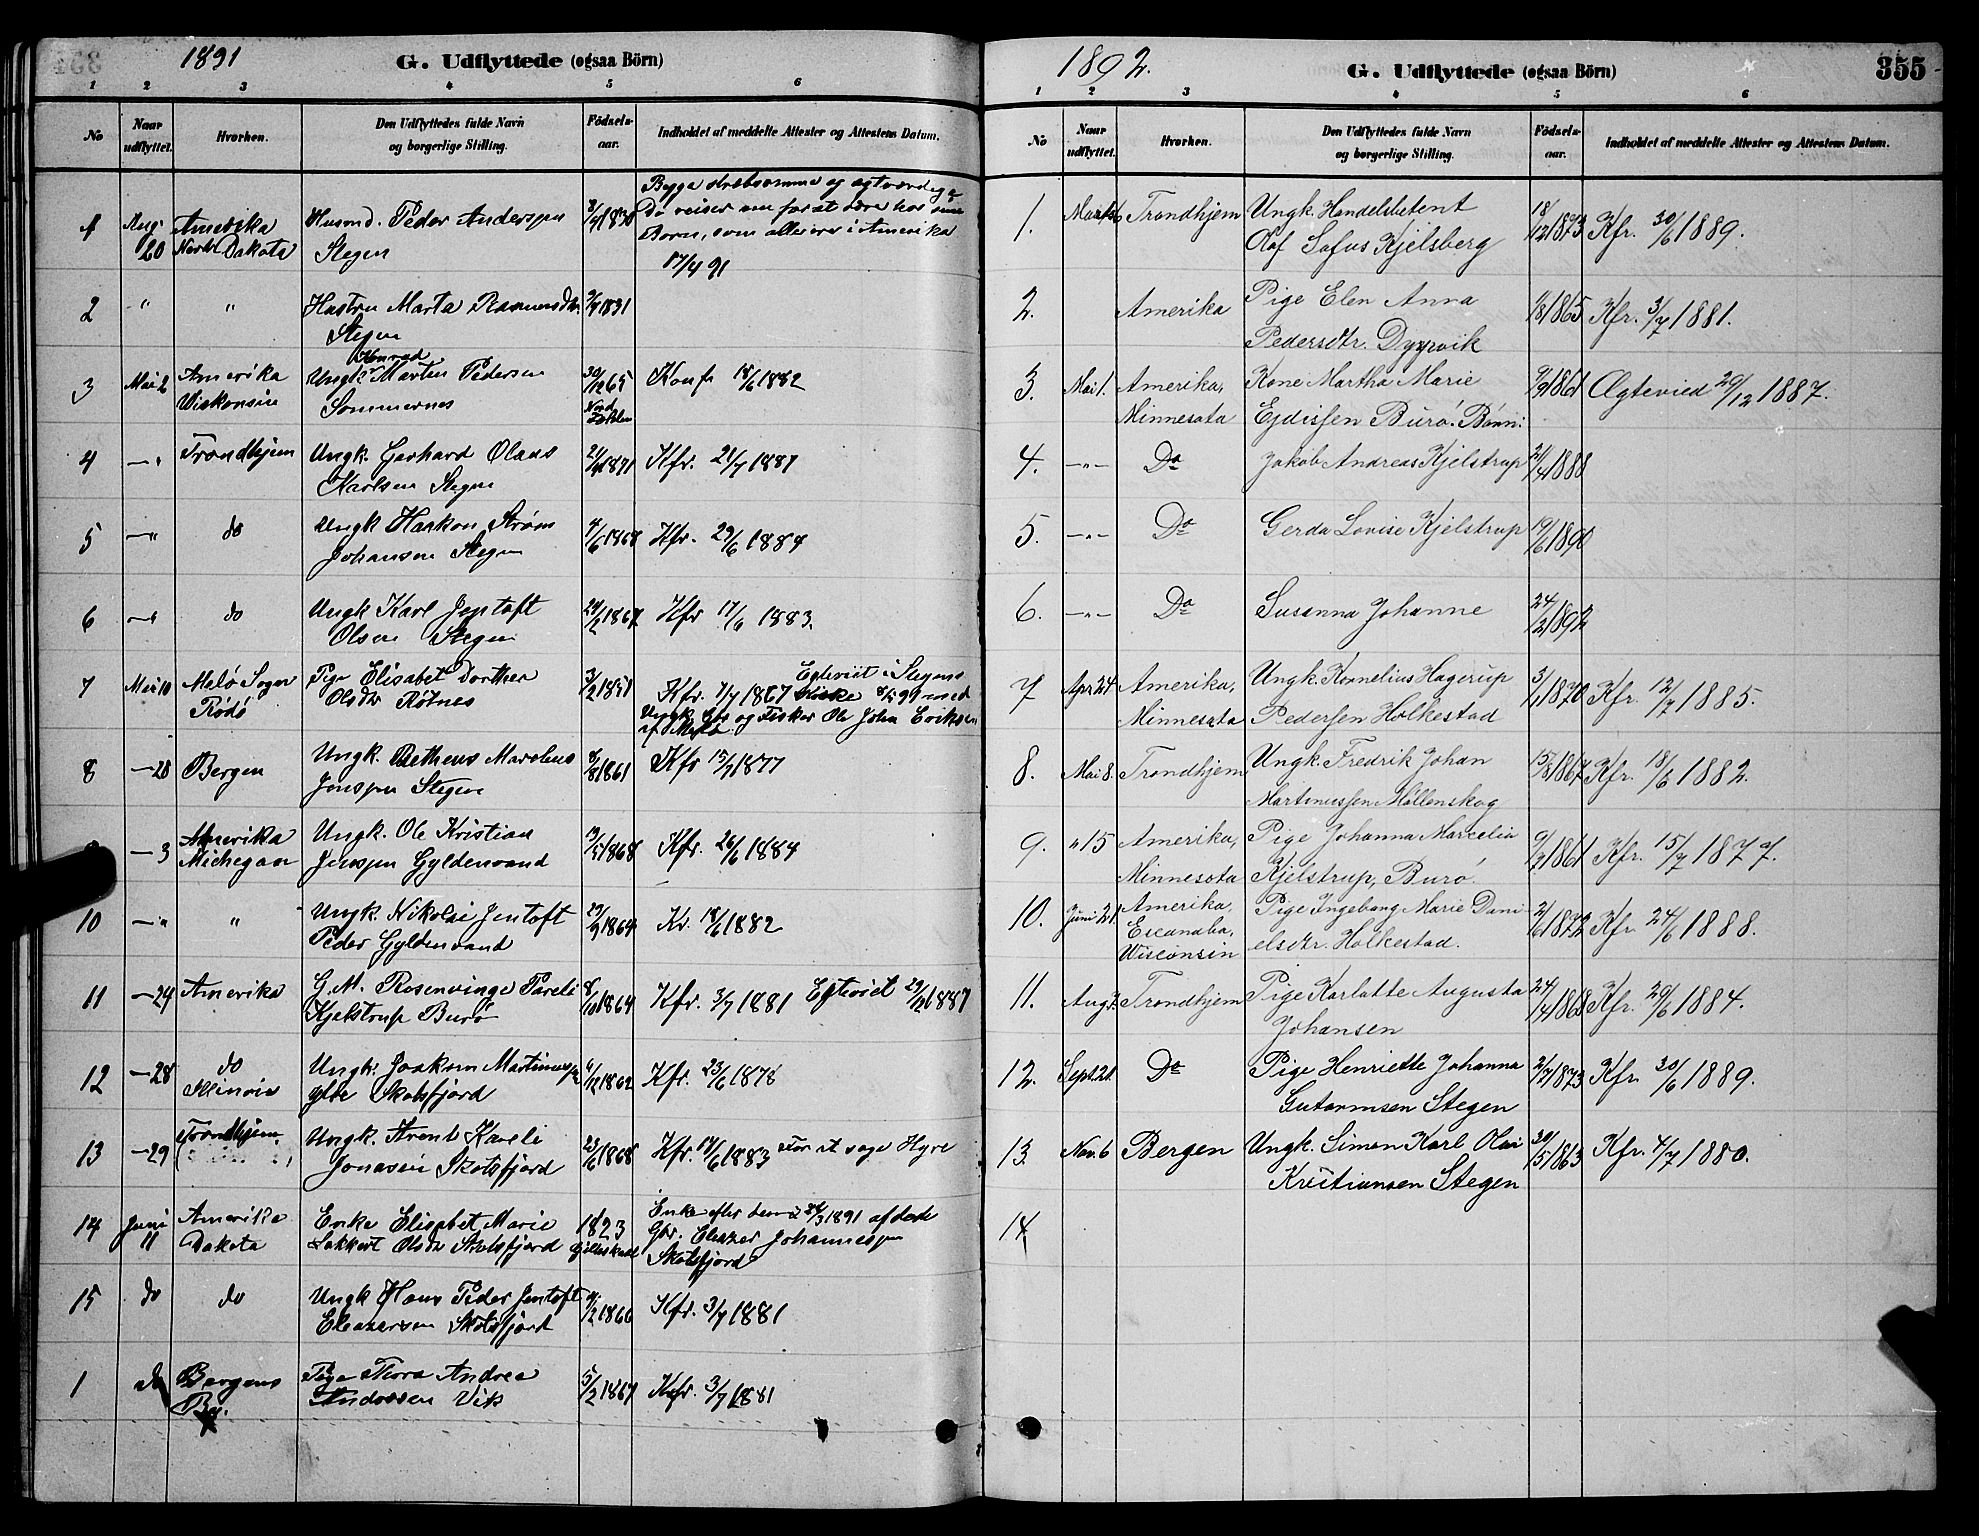 1891
G. Udflyttede (ogsaa Börn)
1 2 3 4 5 6
No
Naar udflyttet.
Hvorhen.
Den Udflyttedes fulde Navn og borgerlige Stilling.
Födsels-aar.
Indholdet af meddelte Attester og Attestens Datum.
1 Aug. 20 Amerika North Dakota
Husmd. Peder Anderssen
Stegen
1830
Begge strebsomme og agtværdige
De reiser nu for at være hos sine
Børn, som alle ere i Amerika
17/4 91
2 " " Hustru Marta Rasmusdtr.
Stegen
1831
3 Mai 2 Amerika Viskonsin
Konrad
Ungk. Martin Pedersen
Sommernes
30/12 65
Konf. 18/6 1882
4 —"— Trondhjem
Ungk. Gerhard Olaus
Karlsen Stegen
1871
Kfr. 21/7 1887
5 —"— do
Ungk Haakon Strøm
Johansen Stegen
4/6 1868
Kfr. 29/6 1884
6 —"— do
Ungk Karl Jentoft
Olsen Stegen
1867
Kfr 17/6 1883.
7 Mai 10 Melö Sogn Rödö
Pige Elisabet Dorthea
Olsdtr Røtnes
3/2 1851
Kfr. 7/7 1867 Egteviet i Stegens
Kirke med
Ungk. Gbr og Fisker Ole John Eriksen
af Melø
8 —28 Bergen
Ungk. Marelius
Jenssen Stegen
8/8 1861
Kfr 15/7 1877
—3 Amerika Michegan
Ungk. Ole Kristian
Jenssen Gyldenvand
1868
Kfr. 26/6 1884
10 —"— "
Ungk. Nikolai Jentoft
Peder Gyldenvand
29/9 1864
Kr. 18/6 1882
11 —24 Amerika
G. M. Rosenvinge Pareli
Kjelstrup Burø
8/10 1864
Kfr. 3/7 1881 Egteviet 29/12 1887
12 —28 do Illinois
Ungk. Joakim Martinussen
Skotsfjord
1862
Kfr. 23/6 1878
13 —29 Trondhjem
Ungk. Arent Kareli
Jonassen Skotsfjord
23/6 1868
Kfr. 17/6 1883 for at søge Hyre
14 Juni 11 Amerika Dakota
Enke Elisabet Marie
Lekkert Olsdtr Skotsfjord
1823
Gilleskaal
Enke efter den 24/3 1891 afdøde
Gbr. Eleazer Johannessen
Skotsfjord
15 do do
Ungk Hans Peder Jentoft
Eleazersen Skotsfjord
1866
Kfr. 3/7 1881
1 do Bergens By.
Pige Thora Andrea
Andorsen Vik
5/2 1867
Kfr. 3/7 1881
1892.
G. Udflyttede (ogsaa Börn)
355
1 2 3 4 5 6
No
Naar udflyttet.
Hvorhen.
Den Udflyttedes fulde Navn og borgerlige Stilling.
Födsels-aar.
Indholdet af meddelte Attester og Attestens Datum.
1. Marts 6 Trondhjem
Ungk. Handelsbetent
Olaf Sofus Kjelsberg
18/12 1873
Kfr. 30/6 1889.
2. Amerika
Pige Elen Anna
Pedersdtr. Dypvik
1865
Kfr. 3/7 1881.
3. Mai 1. Amerika, Minnesota
Kone Martha Marie
Ejdissen Burö. Børn:
9/9 1861
Ægteviet 29/12 1887.
4. —"— Do
Jakob Andreas Kjelstrup
21/4 1888
5. —"— Do
Gerda Lovise Kjelstrup
19/6 1890
6. —"— Do
Susanna Johanne
24/2 1892
7 Apr. 24 Amerika, Minnesota
Ungk. Kornelius Hagerup
Pedersen Holkestad
3/1 1870
Kfr. 12/7 1885.
8. Mai 8. Trondhjem
Ungk. Fredrik Johan
Martinussen Möllenskog
15/8 1867
Kfr. 18/6 1882.
9. " 15 Amerika, Minnesota
Pige Johanna Marcelia
Kjelstrup, Burö
9/3 1861
Kfr. 15/7 1877.
10. Juni 21. Amerika, Escanaba, Wisconsin
Pige Ingebang Marie Dani-
elsdtr. Holkestad.
2/6 1872
Kfr. 24/6 1888.
11. Aug. 7. Trondhjem
Pige Karlotte Augusta
Johansen
24/4 1868
Kfr. 29/6 1884.
12. Sept. 21. Do
Pige Henriette Johanna
Gutormsen Stegen
2/7 1873
Kfr. 30/6 1889.
13. Nov. 6 Bergen
Ungk. Simon Karl Olai
Kristiansen Stegen
30/5 1863
Kfr. 4/7 1880.
14